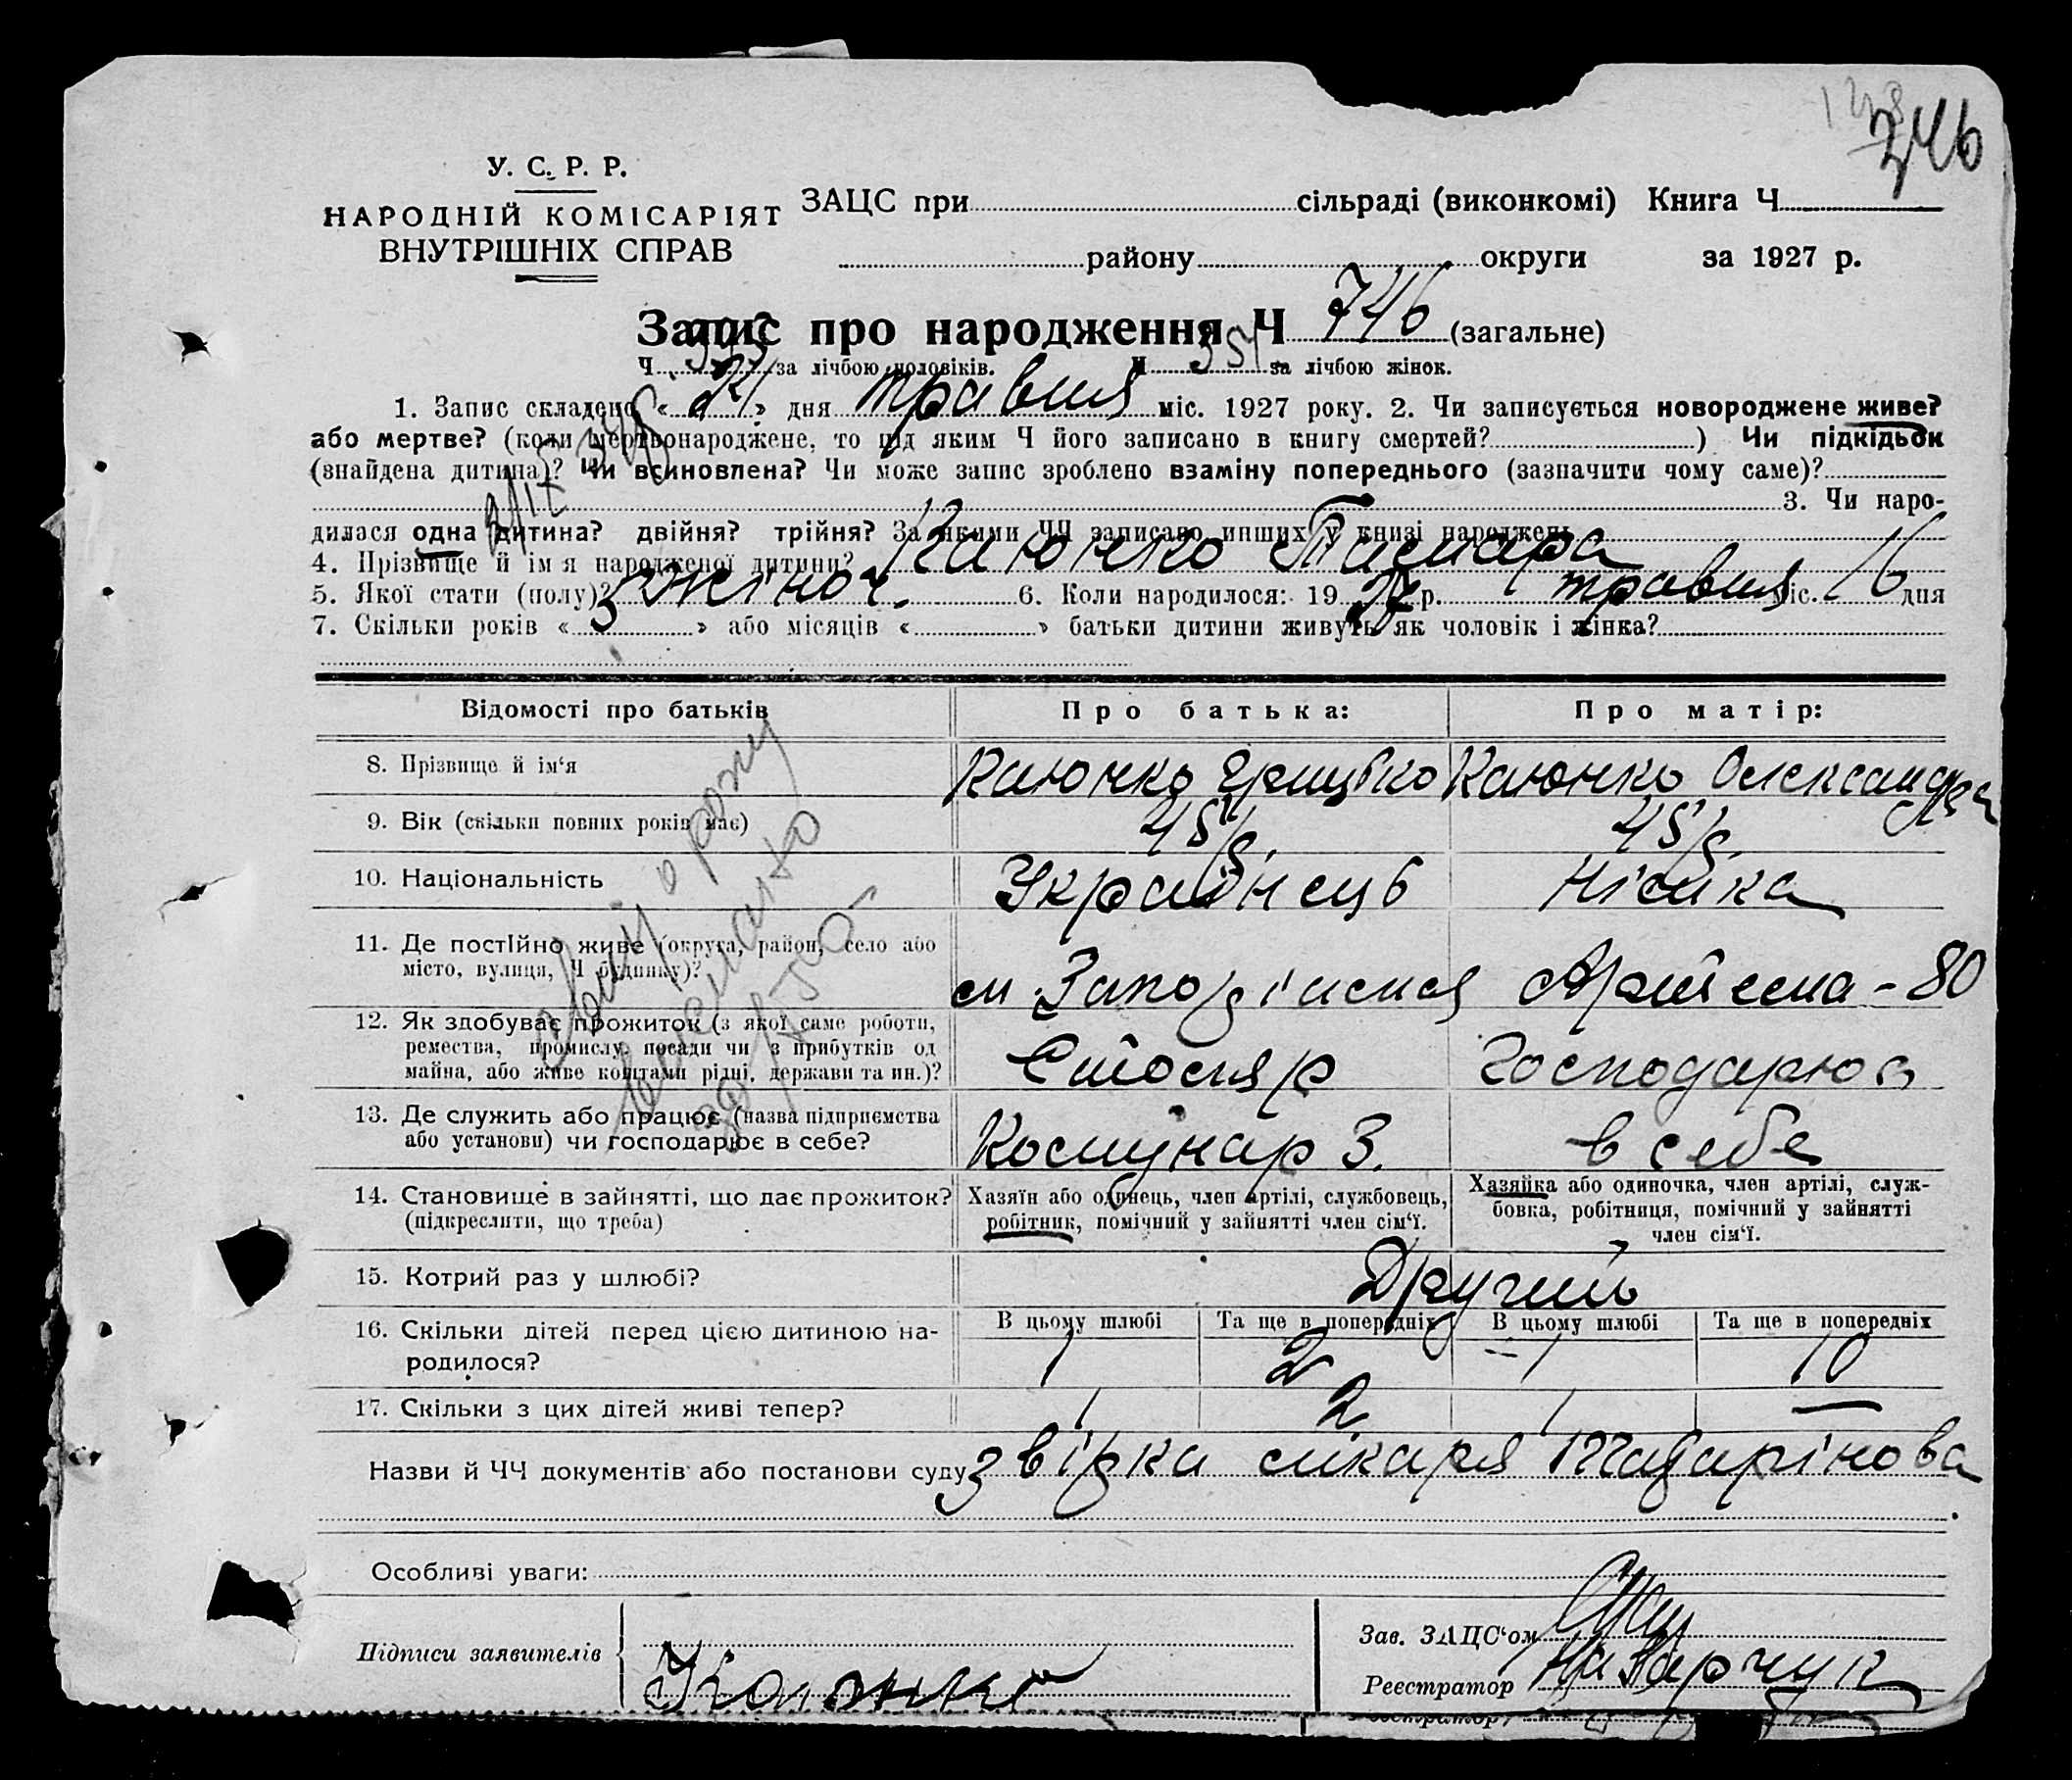 746
У. С. Р. Р.
НАРОДНІЙ КОМІСАРІЯТ
ВНУТРІШНІХ СПРАВ
ЗАЦС при сільраді (виконкомі) Книга Ч
району округи за 1927 р.
Запис про народження Ч 746 (загальне)
Ч за лічбою чоловіків. Ч 351 за лічбою жінок.
1. Запис складено « 21 » дня травня міс. 1927 року. 2. Чи записується новороджене живе?
або мертве? (коли мертвонароджене, то під яким Ч його записано в книгу смертей? ) Чи підкідьок
(знайдена дитина)? Чи всиновлена? Чи може запис зроблено взаміну попереднього (зазначити чому саме)?
3. Чи наро-
дилася одна дитина? двійня? трійня? За якими ЧЧ записано инших у книзі народжень
4. Прізвище й ім'я народженої дитини? Клюнко Тамара
5. Якої стати (полу)? жіноч. 6. Коли народилося: 19 27 р. травня міс. 16 дня
7. Скільки років « 3 » або місяців « » батьки дитини живуть як чоловік і жінка?
Відомості про батьків Про батька: Про матір:
8. Прізвище й ім'я Клюнко Грицько Клюнко Олександра
9. Вік (скільки повних років має) 45 р. 45 р.
10. Національність Українець
11. Де постійно живе (округа, район, село або
місто, вулиця, Ч будинку)?
м. Запоріжжя Артема - 80
12. Як здобуває прожиток (з якої саме роботи,
ремества, промислу, посади чи з прибутків од
майна, або живе коштами рідні, держави та ин.)?
Столяр Господарює
13. Де служить або працює (назва підприємства
або установи) чи господарює в себе?
Комунар З. в себе
14. Становище в зайнятті, що дає прожиток?
(підкреслити, що треба)
Хазяїн або одинець, член артілі, службовець,
робітник, помічний у зайнятті член сім'ї.
Хазяйка або одиночка, член артілі, служ-
бовка, робітниця, помічний у зайнятті
член сім'ї.
15. Котрий раз у шлюбі? Другий
16. Скільки дітей перед цією дитиною на-
родилося?
В цьому шлюбі Та ще в попередніх В цьому шлюбі Та ще в попередніх
1 2 1 10
17. Скільки з цих дітей живі тепер? 1 2 1 —
Назви й ЧЧ документів або постанови суду звідка лікаря
Особливі уваги:
Підписи заявителів Клюнко
Зав. ЗАЦС'ом
Реєстратор